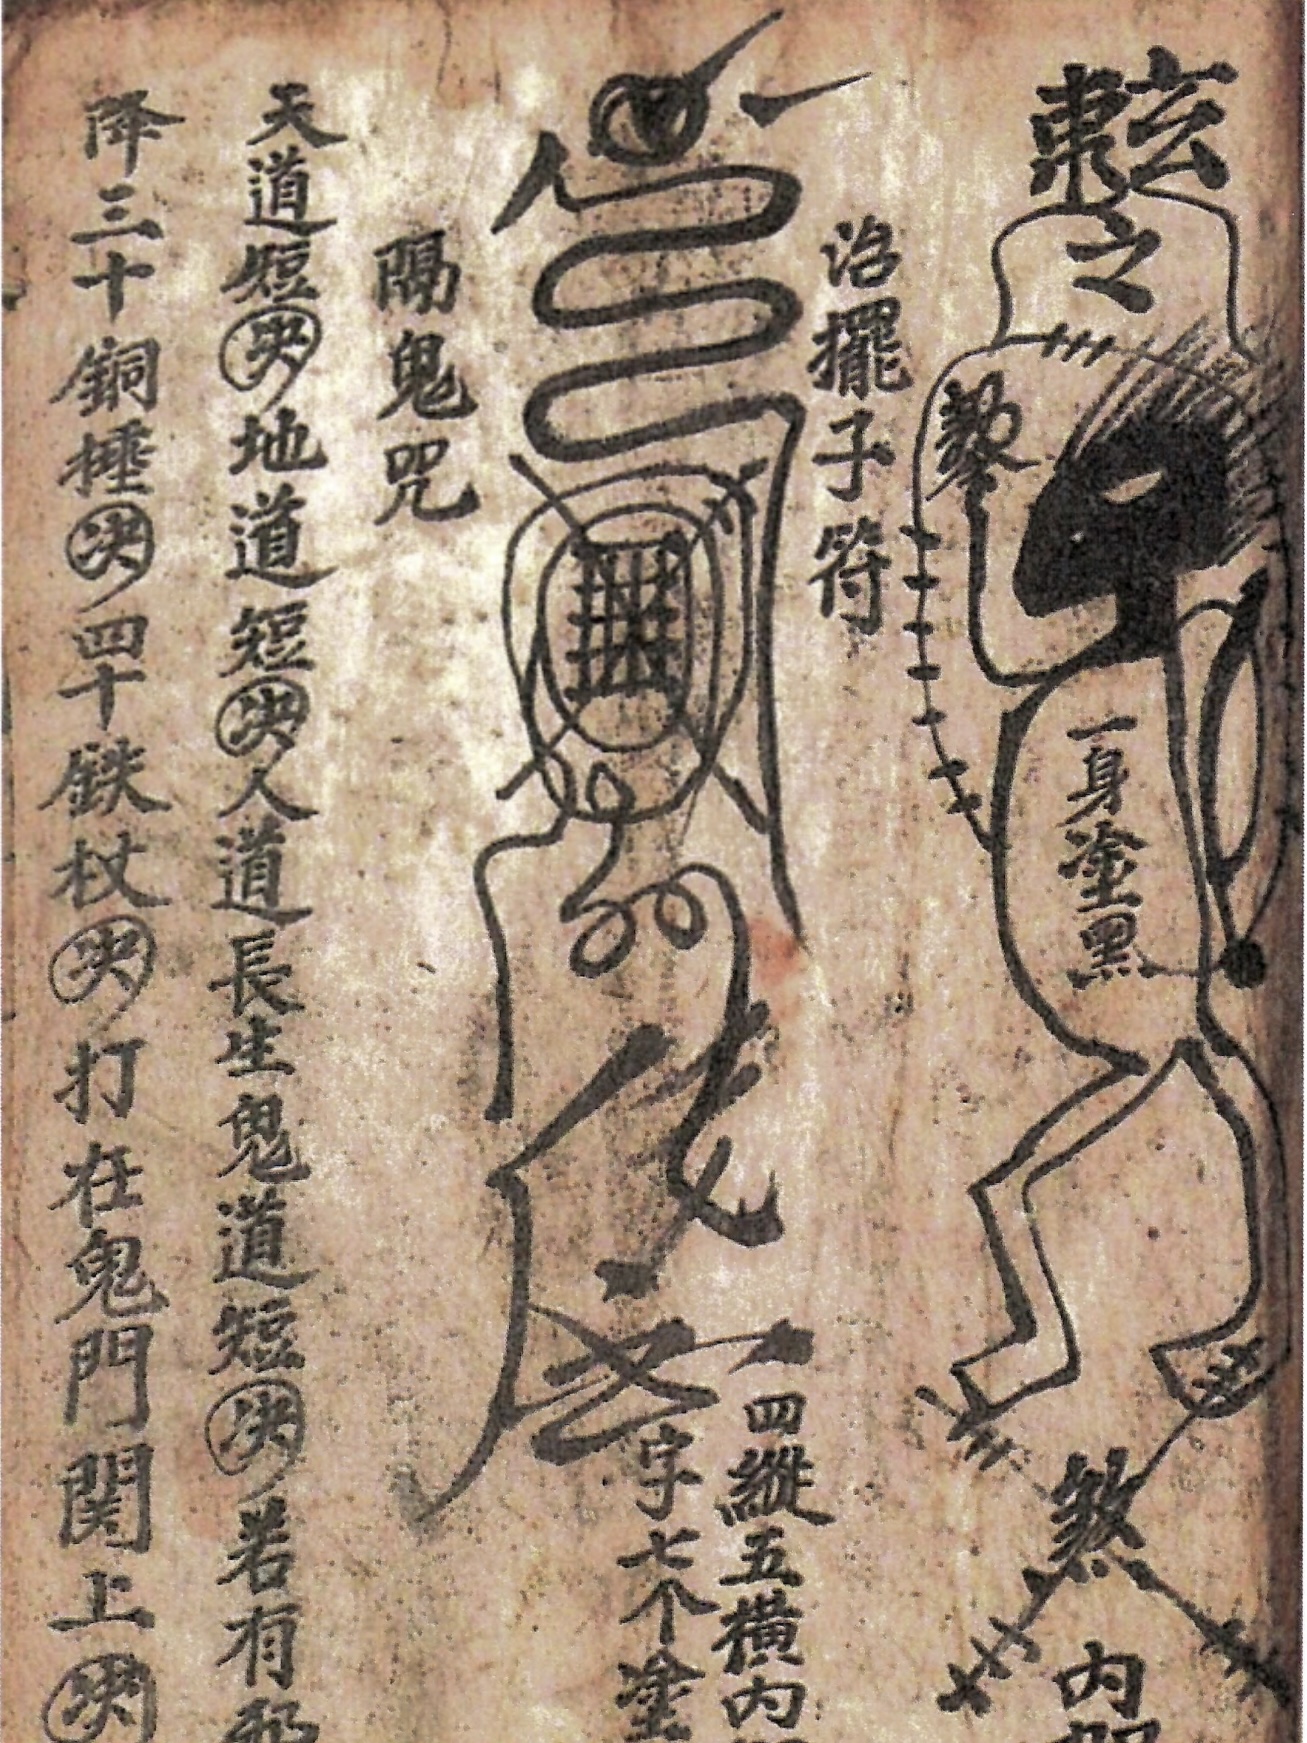 之
一身塗黑
煞
内
治擺子符
四縱五橫内
字七个塗
隔鬼咒
天道短決地道短決人道長生鬼道短決若有
降三十銅捶決四十鉄杖決打在鬼門関上決